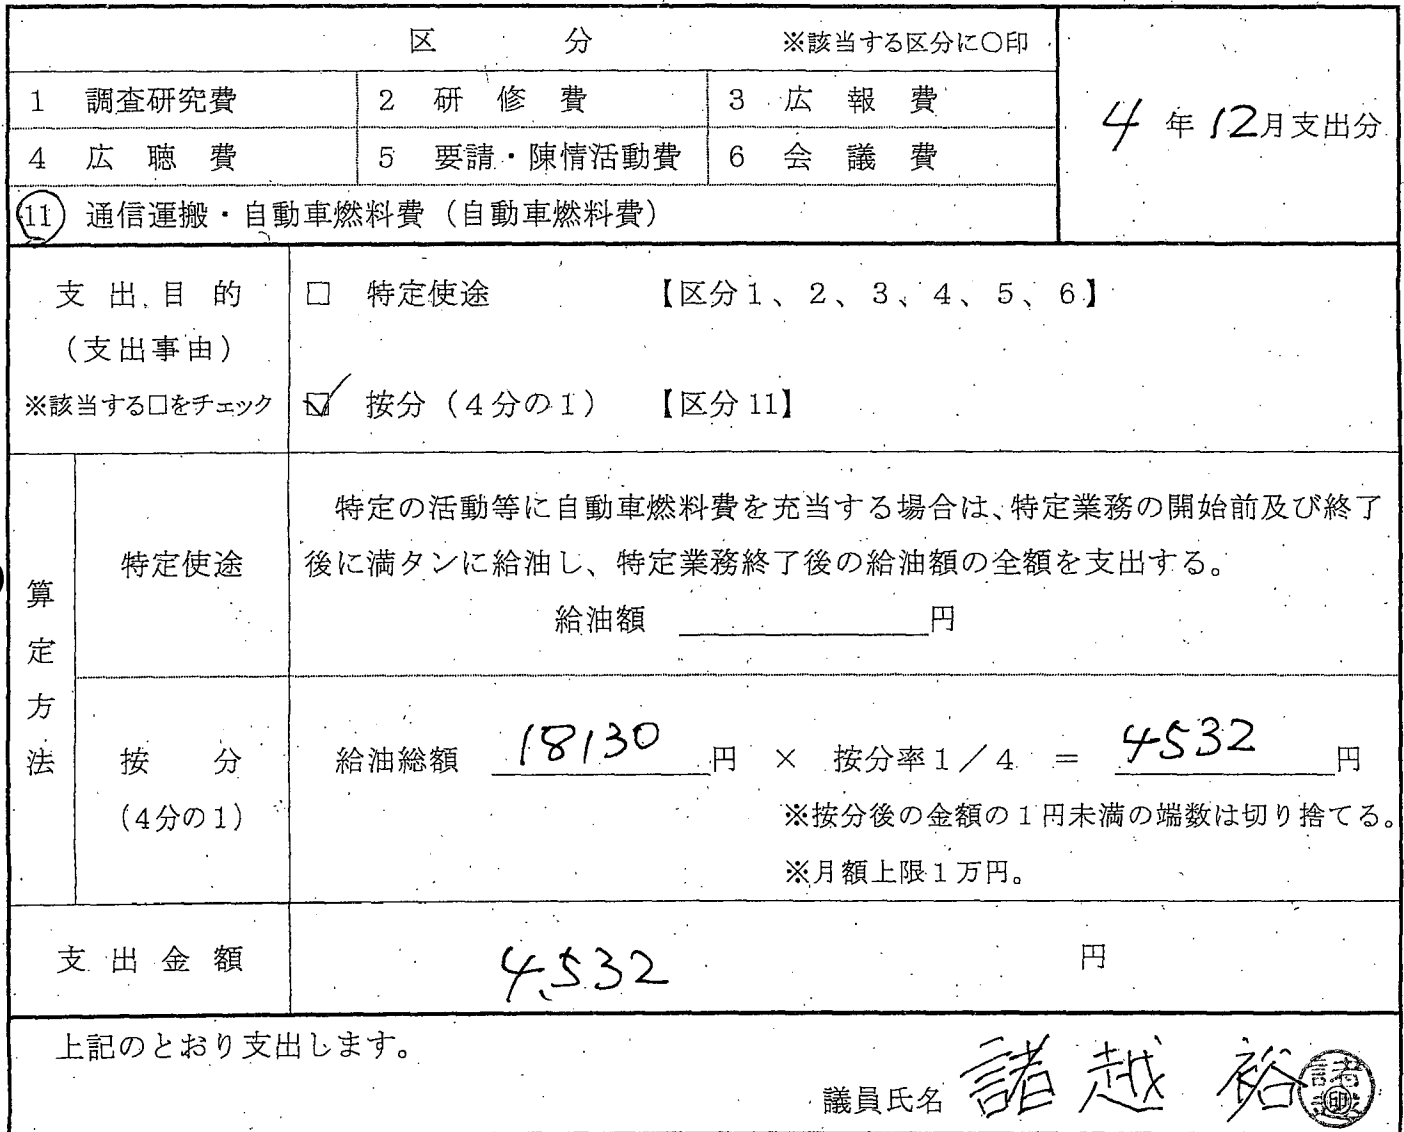 区 分 ※該当する区分に○印
4 年 12月支出分
1 調査研究費 2 研修費 3 広報費
4 広聴費 5 要請・陳情活動費 6 会議費
11 通信運搬・自動車燃料費（自動車燃料費）
支出目的
（支出事由）
※該当する□をチェック
□ 特定使途 【区分1、2、3、4、5、6】
☑ 按分（4分の1） 【区分11】
算定方法
特定使途
特定の活動等に自動車燃料費を充当する場合は、特定業務の開始前及び終了
後に満タンに給油し、特定業務終了後の給油額の全額を支出する。
給油額 円
按分
（4分の1）
給油総額 18130 円 × 按分率1／4 ＝ 4532 円
※按分後の金額の1円未満の端数は切り捨てる。
※月額上限1万円。
支出金額 4,532 円
上記のとおり支出します。
議員氏名 諸越 裕 諸越 印